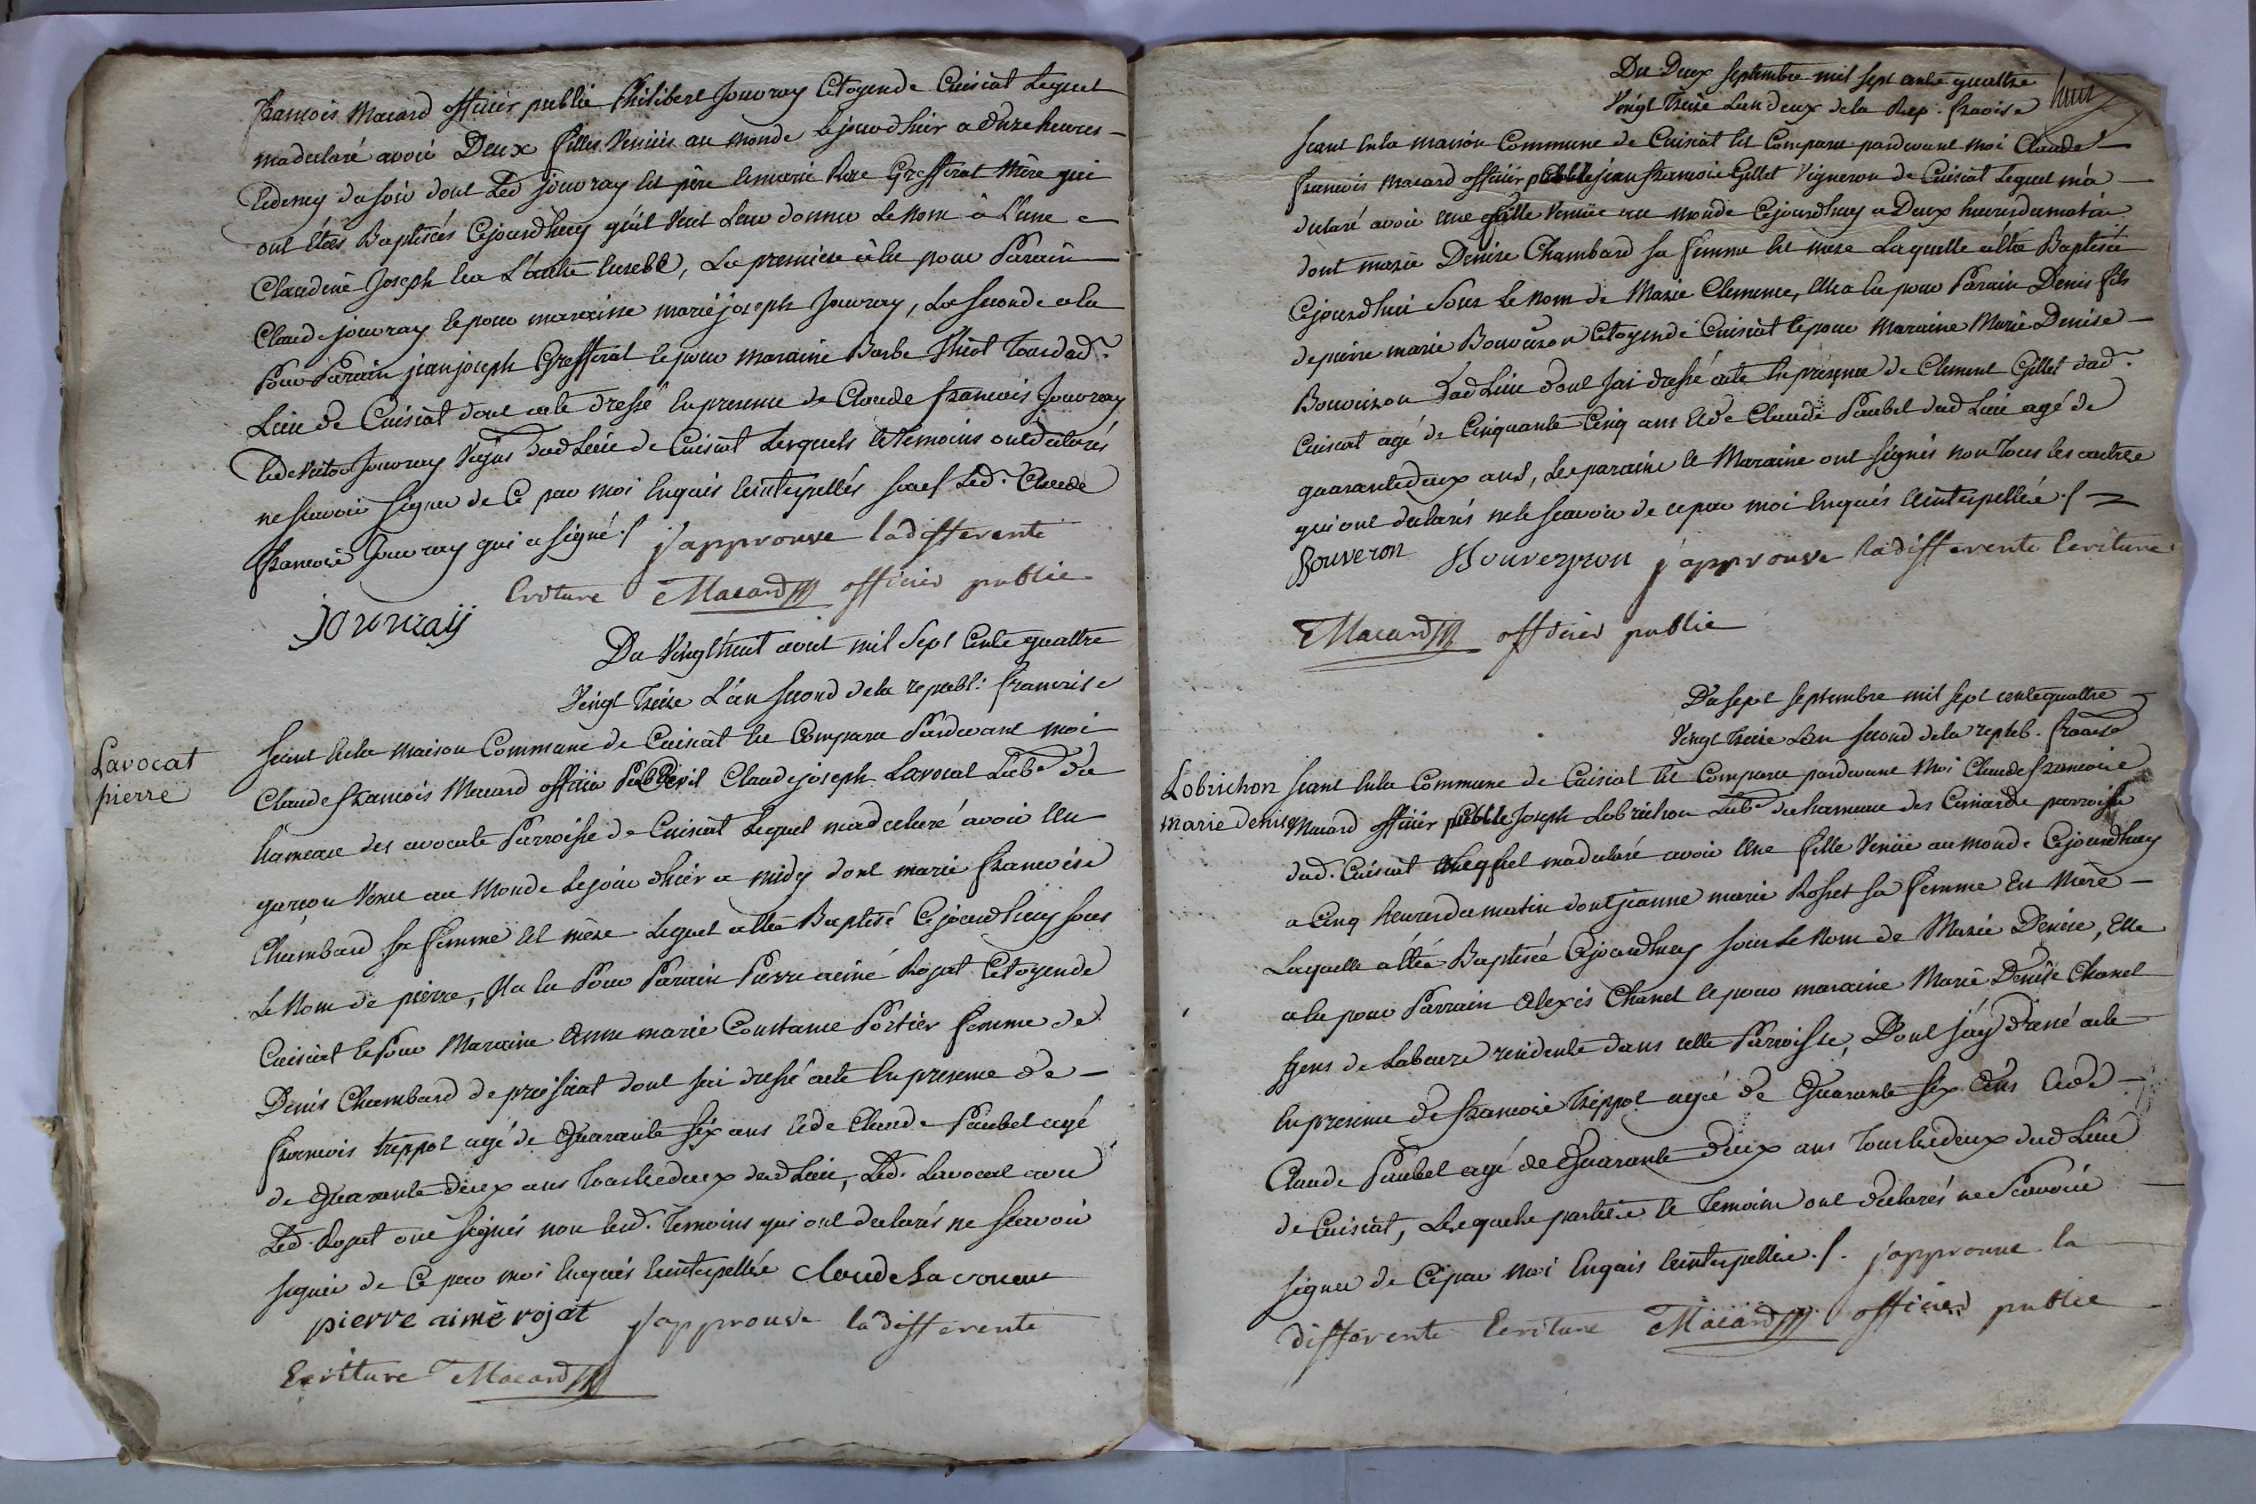 francois Macard officier public Philibert Jouvray Citoyen de Cuisiat Lequel
madeclaré avoir Deux filles Venuës au monde le jourdhier a onze heures
et demy du soir dont Led jouvray est père et marie Rose Grefferat Mère qui
ont étées Baptisées Cejourdhuy qu'il veut leur donner Le Nom à L'une
Claudine Joseph et a L'autre, La premiere a eu pour Parain
Claude jouvray et pour maraine marie joseph Jouvray, La seconde a eu
Pour Parain jean joseph Grefferat et pour maraine Barbe Tous dud.
Lieu de Cuisiat dont acte dressé en presence de Claude francois Jouvray
et de Jouvray dud Lieu de Cuisiat Lesquels et temoins ont declarés
ne scavoir signer de Ce par moi enquis et interpellés sauf Led. Claude
francois Jouvray qui a signé ./. j'approuve la differente
Ecriture Macard officier public
jouvray
Du Vingt huit aout mil Sept Cents quattre
Vingt Treize L'an second de la republ. francaise
Lavocat
pierre
seant en la maison Commune de Cuisiat est Comparu Pardevant moi
Claude francois Macard officier Claude joseph Lavocat Lab.r du
hameau des avocats Parroisse de Cuisiat Lequel madeclaré avoir Un
garçon Venu au Monde le jour dhier a midy dont marie francoise
Chambard sa femme est mère Lequel a été Baptisé Cejourdhuy sous
Le Nom de pierre, Il a eu Pour Parain Pierre aimé Rojat Citoyen de
Cuisiat et Pour Maraine Anne marie Constance Portier femme de
Denis Chambard de pressiat dont jai dressé acte en presence de
francois treppoz agé de Quarante six ans et de Claude Paubel agé
de Quarante deux ans tous les deux dud Lieu, Led. Lavocat avec
Led. Rojat ont signés non lesd. Temoins qui ont declarés ne scavoir
signer de Ce par moi enquis et interpellés Claude Lavoncat
pierre aimé rojat j'approuve la differente
Ecriture Macard
Du Deux septembre mil sept cents quattre
Vingt Treize L'an deux de la Rep. francoise
huit
seant en la maison Commune de Cuisiat est Comparu pardevant moi Claude
francois Macard officier public jean francois Gillet Vigneron de Cuisiat Lequel m'a
declaré avoir une fille Venüe au monde Cejourdhuy a Deux heures du matin
dont marie Denise Chambard sa femme est mere Laquelle a été Baptisée
Cejourdhui Sous Le Nom de Marie Clemence, elle a eu pour Parain Denis fils
de pierre marie Bouveron Citoyen de Cuisiat et pour Maraine Marie Denise
Bouveron dud Lieu dont Jai dressé acte en presence de Clement Gillet dud.
Cuisiat agé de Cinquante Cinq ans et de Claude Paubel dud Lieu agé de
quarante deux ans, Les parain et Maraine ont signés non Tous les autres
qui ont declarés ne le scavoir de ce par moi enquis et interpellés ./.
Bouveron Bouveyron j'approuve la differente Ecriture
Macard officier public
Du sept septembre mil sept cents quattre
Vingt Treize L'an second de la repub. francoise
Lobrichon
Marie Denise
seant en la Commune de Cuisiat est Comparu pardevant Moi Claude francois
Macard officier public Joseph Lobrichon Lab.r du hameau des parroisse
dud. Cuisiat Lequel madeclaré avoir Une fille Venüe au monde Cejourdhuy
a Cinq heures du matin dont jeanne marie Rosset sa femme est Mère
Laquelle a été Baptisée Cejourdhuy sous Le Nom de Marie Denise, Elle
a eu pour Parrain Alexis Chanel et pour maraine Marie Denise Chanel
Gens de Labeure residents dans cette Parroisse, Dont j'ay dressé acte
en presence de francois treppoz agé de Quarante six ans et de
Claude Paubel agé de Quarante deux ans Tous les deux dud Lieu
de Cuisiat, Lesquels parties et Temoins ont declarés ne Scavoir
signer de Ce par Moi enquis et interpellés ./. j'approuve la
differente Ecriture Macard officier public